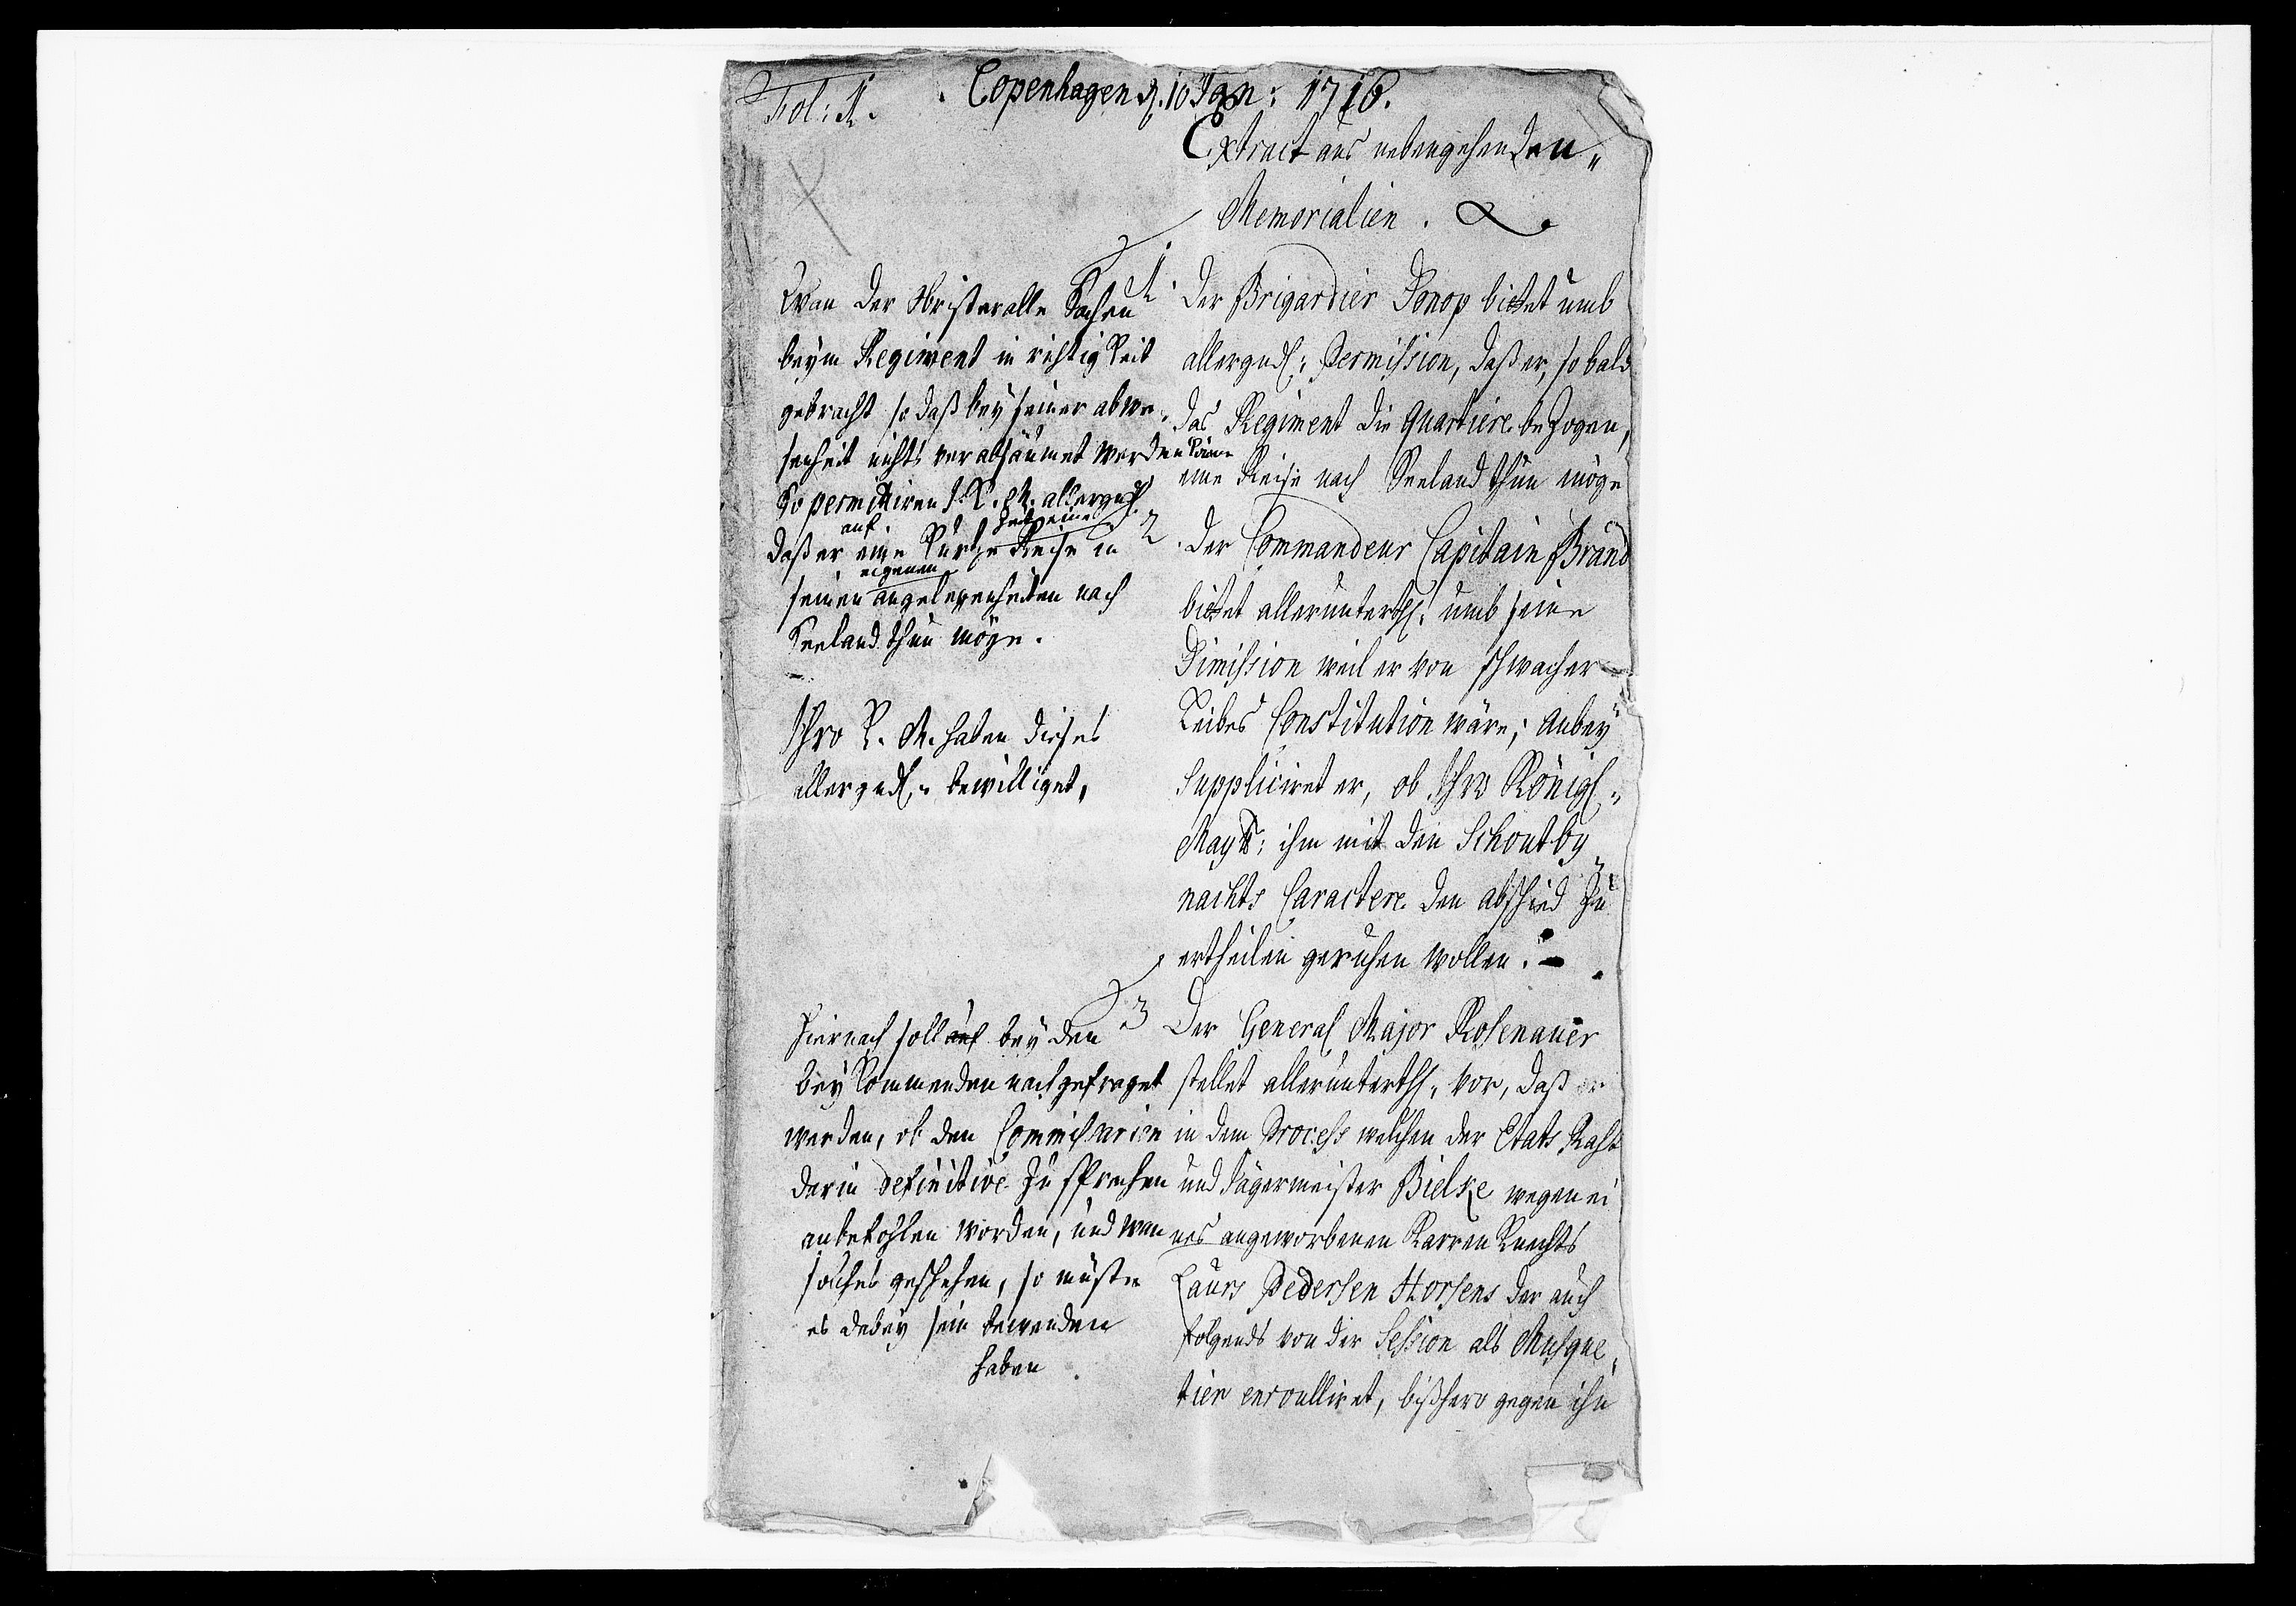 Fol: 1.
Copenhagen d. 10 Jan: 1716.
Extract aus nebengehenden
Memorialien.
1. Der Brigardier Donop bittet umb
allergndl: Permission, daß er, so bald
das Regiment die Quartiere bezogen,
eine Reise nach Seeland thun möge
Wan der Obrister alle Sachen
beym Regiment in richtigkeit
gebracht so daß bey seiner abwe-
senheit nichts verabsäumet werden kön̄e
So permittiren I. K. M. allergndl
auf Zeit eine
daß er eine kurtze Reise in
eigenen
seinen angelegenheiten nach
Seeland thun möge.
2. Der Commandeur Capitain Brand
bittet allerunterthl. umb seine
Dimission weil er von schwacher
Leibes Constitution wäre; Anbey
Suppliciret er, ob Ihro Königl.
Maytt: ihm mit den Schoutby
nachts Caractere den abschied zu
ertheilen geruhen wollen.
Ihro K. M. haben dieses
allergndl. bewilliget.
3 Der General Major Rosenauer
stellet allerunterthl. vor, daß er
in dem Process welchen der Etats Raht
und Jägermeister Bielke wegen ei
nes angeworbenen Karren Knechts
Laurs Pedersen Horsens der auch
folgends von der Session als Musque
tier enroulliret, bißhero gegen ihn
Hiernach soll auf bey den
bey kommenden nachgefraget
werden, ob den Commissarien
darin definitive zu sprechen
anbefohlen worden, und wan
solches geschehen, so müste
es dabey sein bewenden
haben